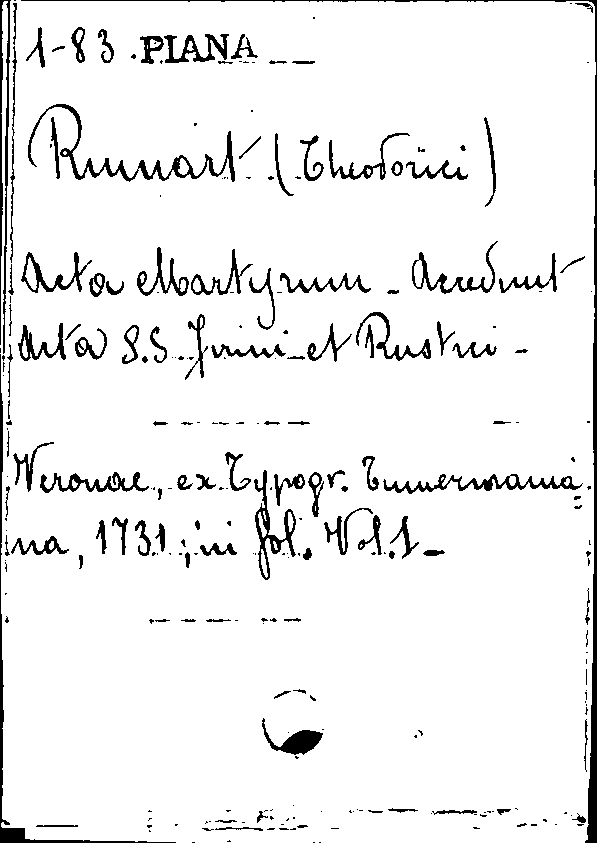 1-83 PIANA
Ruinart (Theodorici)
Acta Martyrum - Accedunt
Acta S.S. Firmi et Rustici -
Veronae, ex Typogr. Tumermania
na, 1731; in fol. Vol. 1 -